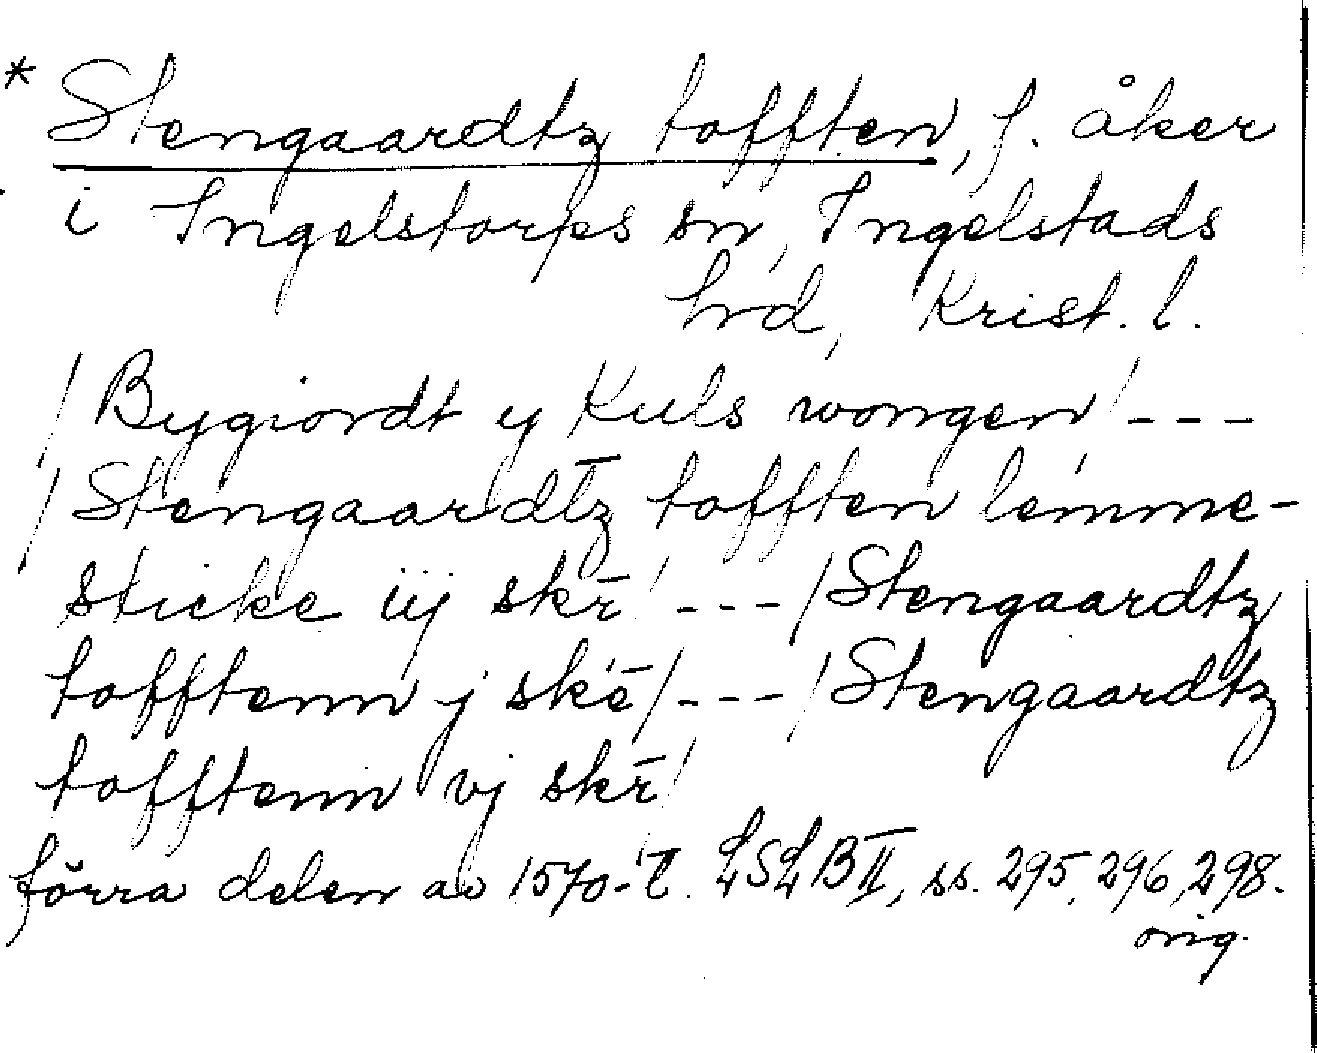 * Stengaardtz tofften, f. åker
i Ingelstorps sn, Ingelstads
hrd, Krist. l.
/ Bygiordt y Kuls wongen / ---
/ Stengaardtz tofften lemme-
sticke iij skr̄ / --- / Stengaardtz
tofftenn j skē / --- / Stengaardtz
tofftenn vj skr̄ /
förra delen av 1570-t. LSLB II, ss. 295, 296, 298.
orig.